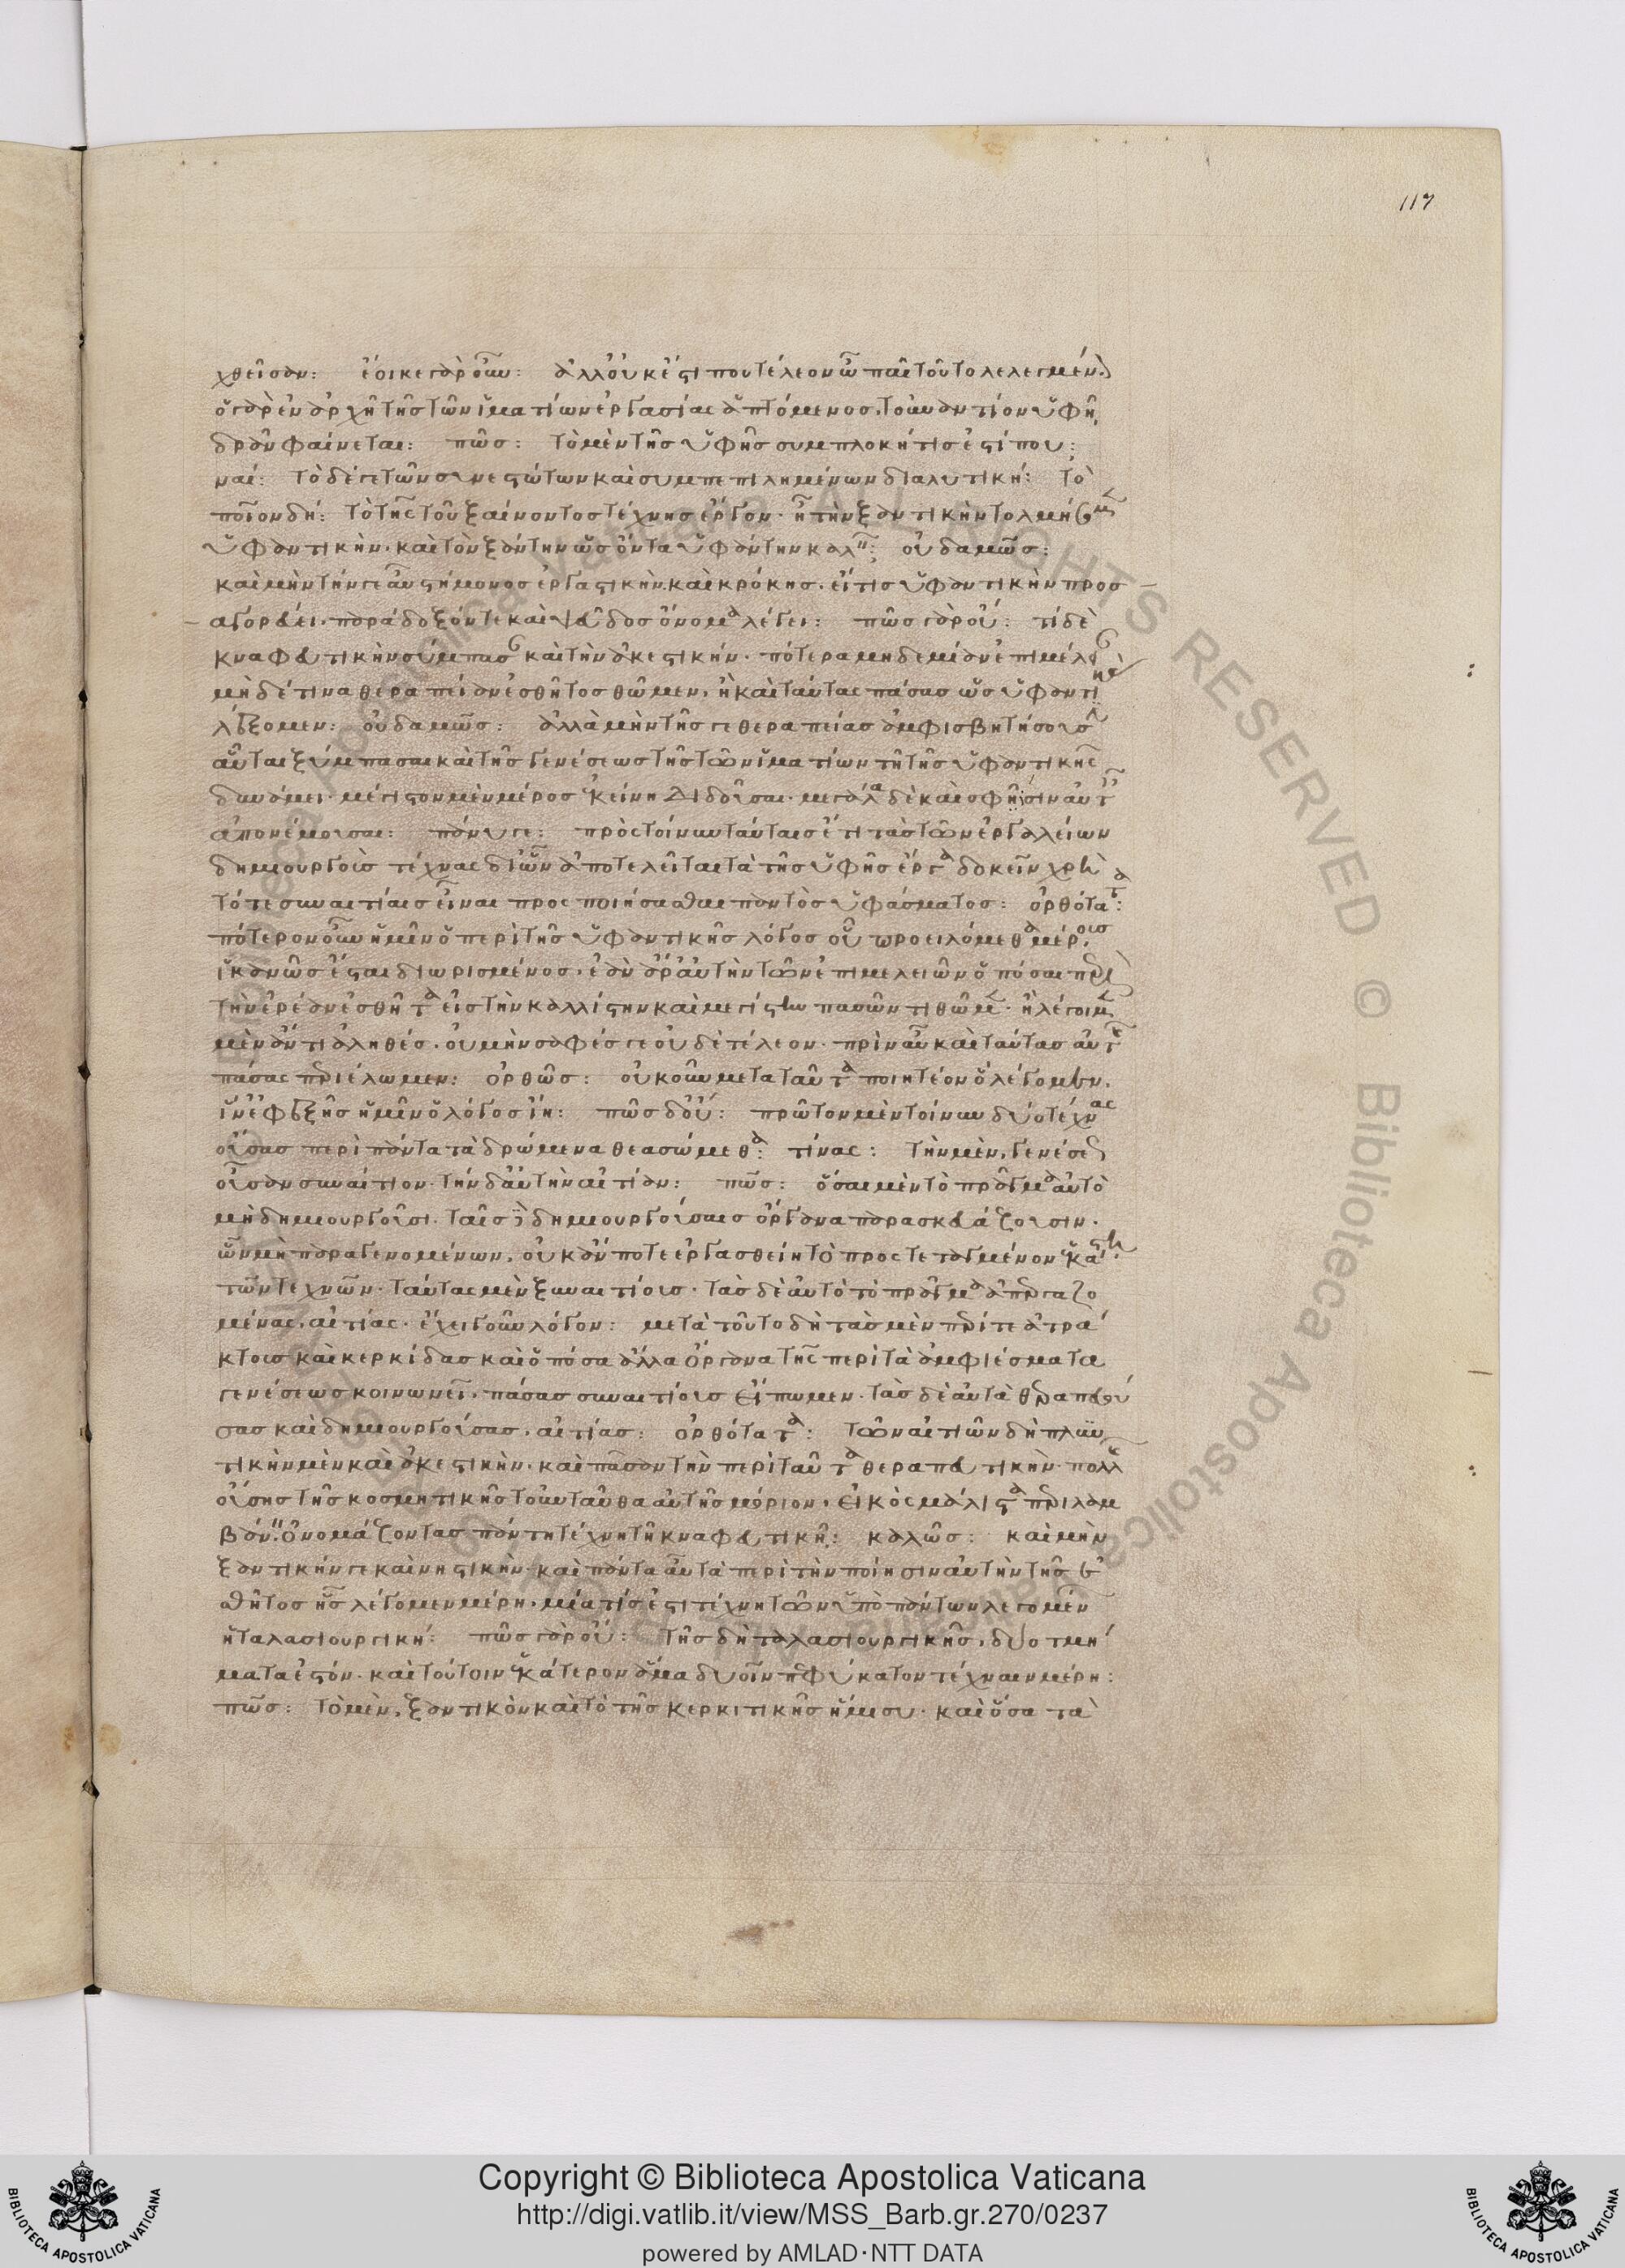 117
χθεῖσαν: ἔοικε γὰρ οὖν: ἀλλ' οὐκ ἔστι που τέλεον ὦ παῖ τοῦτο λελεγμένον
ὁ γὰρ ἐν ἀρχῇ τῆς τῶν ἱματίων ἐργασίας ἁπτόμενος, τοὐναντίον ὑφῇ
δρᾶν φαίνεται: πῶς: τὸ μὲν τῆς ὑφῆς συμπλοκή τίς ἐστί που:
ναί: τὸ δέ γε τῶν συνεστώτων καὶ συμπεπιλημένων διαλυτική: τὸ
ποῖον δή: τὸ τῆς τοῦ ξαίνοντος τέχνης ἔργον. ἢ τὴν ξαντικὴν τολμήσομεν
ὑφαντικὴν. καὶ τὸν ξάντην ὡς ὄντα ὑφάντην καλεῖν: οὐδαμῶς:
καὶ μὴν τήν γε αὖ στήμονος ἐργαστικὴν καὶ κρόκης. εἴ τις ὑφαντικὴν προσ
αγορεύει. παράδοξόν τε καὶ ψεῦδος ὄνομα λέγει: πῶς γὰρ οὔ: τί δὲ
κναφευτικὴν σύμπασαν καὶ τὴν ἀκεστικήν. πότερα μηδεμίαν ἐπιμέλειαν
μηδέ τινα θεραπείαν ἐσθῆτος θῶμεν, ἢ καὶ ταύτας πάσας ὡς ὑφαντικὰς
λέξομεν: οὐδαμῶς: ἀλλὰ μὴν τῆς γε θεραπείας ἀμφισβητήσουσιν
αὗται ξύμπασαι καὶ τῆς γενέσεως τῆς τῶν ἱματίων τῇ τῆς ὑφαντικῆς
δυνάμει. μέγιστον μὲν μέρος ἐκείνῃ διδοῦσαι. μεγάλα δὲ καὶ σφῇσιν αὐταῖς
ἀπονέμουσαι: πάνυ γε: πρὸς τοίνυν ταύταις ἔτι τὰς τῶν ἐργαλείων
δημιουργοὺς τέχνας δι' ὧν ἀποτελεῖται τὰ τῆς ὑφῆς ἔργα δοκεῖν χρὴ
τό γε συναιτίας εἶναι προσποιήσασθαι παντὸς ὑφάσματος: ὀρθότατα:
πότερον οὖν ἡμῖν ὁ περὶ τῆς ὑφαντικῆς λόγος οὗ προειλόμεθα μέρους
ἱκανῶς ἔσται διωρισμένος. ἐὰν ἄρ' αὐτὴν τῶν ἐπιμελειῶν ὁπόσαι περὶ
τὴν ἐρεᾶν ἐσθῆτα εἰς τὴν καλλίστην καὶ μεγίστην πασῶν τιθῶμεν. ἢ λέγοιμεν
μὲν ἄν τι ἀληθές. οὐ μὴν σαφές γε οὐδὲ τέλεον. πρὶν ἂν καὶ ταύτας αὐτῆς
πάσας περιέλωμεν: ὀρθῶς: οὐκοῦν μετὰ ταῦτα ποιητέον ὃ λέγομεν.
ἵν' ἐφεξῆς ἡμῖν ὁ λόγος ἴῃ: πῶς δ' οὔ: πρῶτον μὲν τοίνυν δύο τέχνας
οὔσας περὶ πάντα τὰ δρώμενα θεασώμεθα: τίνας: τὴν μὲν, γενέσεως
οὖσαν συναίτιον. τὴν δ' αὐτὴν αἰτίαν: πῶς: ὅσαι μὲν τὸ πρᾶγμα αὐτὸ
μὴ δημιουργοῦσι. ταῖς δὲ δημιουργούσαις ὄργανα παρασκευάζουσιν.
ὧν μὴ παραγενομένων, οὐκ ἄν ποτε ἐργασθείη τὸ προστεταγμένον ἑκάστῃ
τῶν τεχνῶν. ταύτας μὲν ξυναιτίους. τὰς δὲ αὐτὸ τὸ πρᾶγμα ἀπεργαζο
μένας, αἰτίας. ἔχει γοῦν λόγον: μετὰ τοῦτο δὴ τὰς μὲν περί τε ἀτρά
κτους καὶ κερκίδας καὶ ὁπόσα ἄλλα ὄργανα τῆς περὶ τὰ ἀμφιέσματα
γενέσεως κοινωνεῖ. πάσας συναιτίους εἴπωμεν. τὰς δὲ αὐτὰ θεραπευού
σας καὶ δημιουργούσας, αἰτίας: ὀρθότατα: τῶν αἰτιῶν δὴ πλυν
τικὴν μὲν καὶ ἀκεστικὴν. καὶ πᾶσαν τὴν περὶ ταῦτα θεραπευτικὴν. πολλῆς
οὔσης τῆς κοσμητικῆς τοὐνταῦθα αὐτῆς μόριον, εἰκὸς μάλιστα περιλαμ
βάνειν ὀνομάζοντας πᾶν τῇ τέχνῃ τῇ κναφευτικῇ: καλῶς: καὶ μὴν
ξαντικήν γε καὶ νηστικὴν. καὶ πάντα αὖ τὰ περὶ τὴν ποίησιν αὐτὴν τῆς ἐ
σθῆτος ἧς λέγομεν μέρη, μία τίς ἐστι τέχνη τῶν ὑπὸ πάντων λεγομένων
ἡ ταλασιουργική: πῶς γὰρ οὔ: τῆς δὴ ταλασιουργικῆς, δύο τμή
ματα ἐστόν. καὶ τούτοιν ἑκάτερον ἅμα δυοῖν πεφύκατον τέχναιν μέρη:
πῶς: τὸ μὲν, ξαντικὸν καὶ τὸ τῆς κερκιτικῆς ἥμισυ. καὶ ὅσα τὰ
Copyright © Biblioteca Apostolica Vaticana
http://digi.vatlib.it/view/MSS_Barb.gr.270/0237
powered by AMLAD·NTT DATA